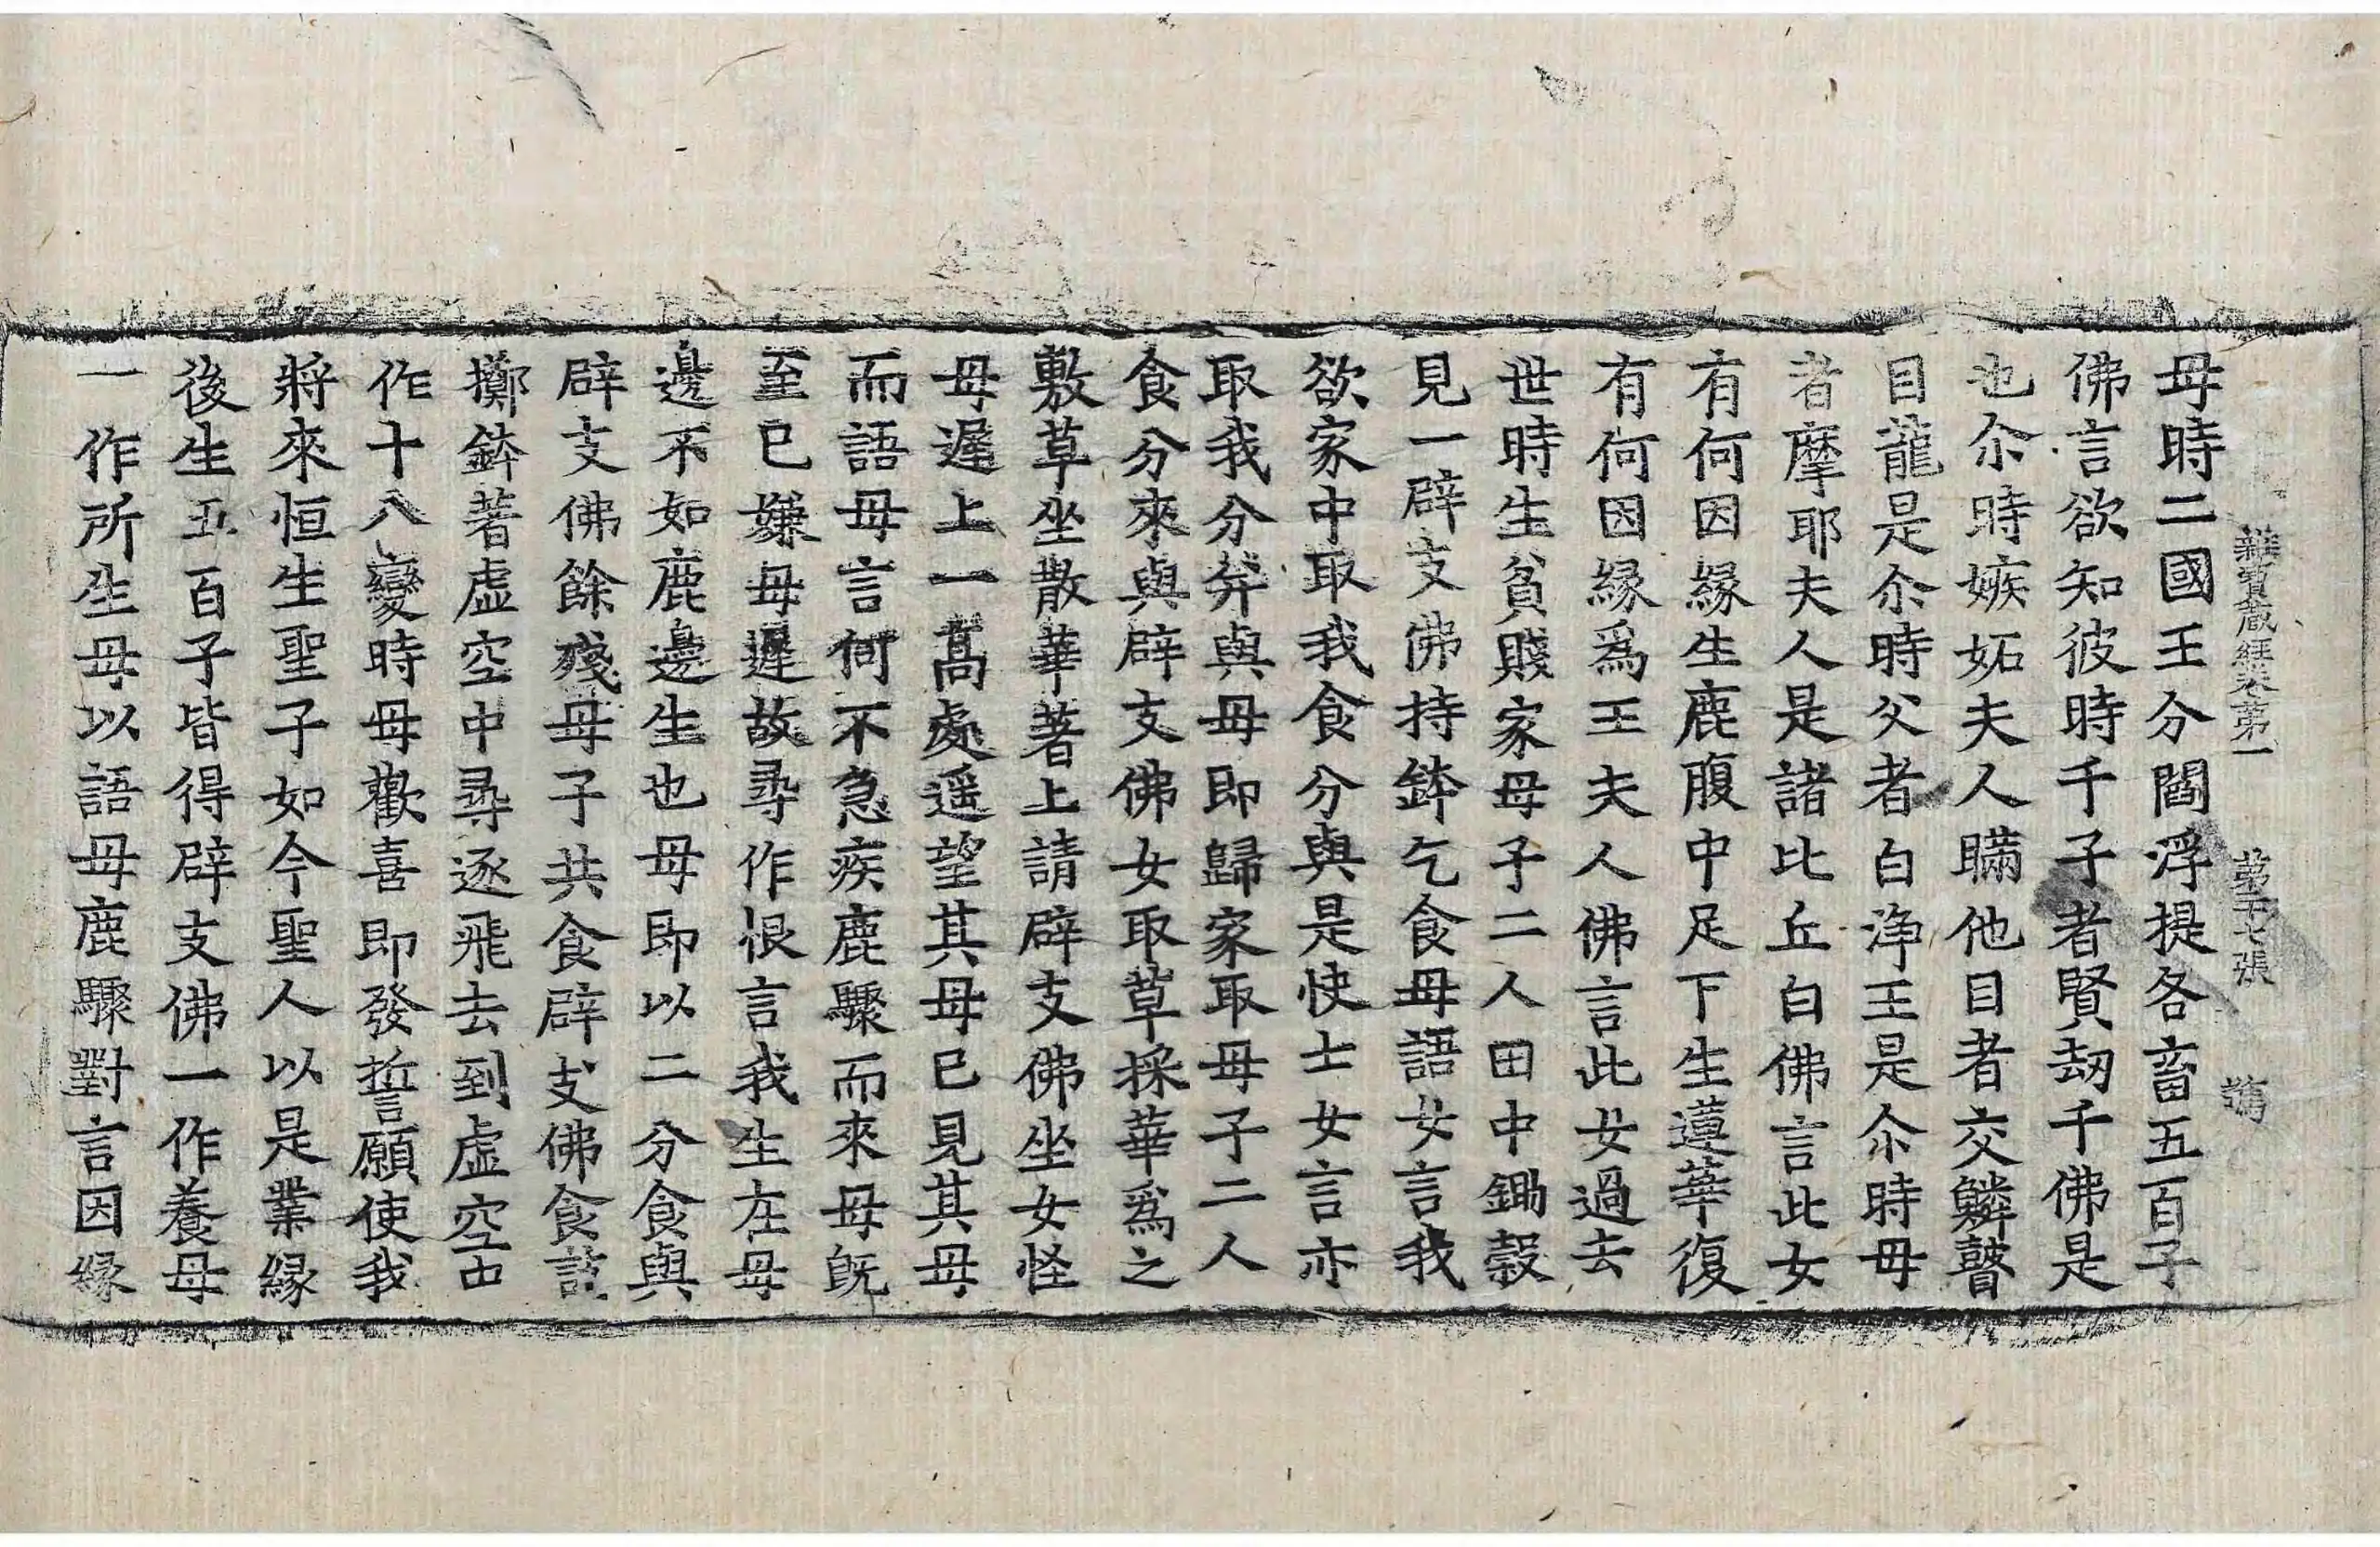 雜寶藏經卷第一 第十七張
母時二國王分閻浮提各畜五百子
佛言欲知彼時千子者賢劫千佛是
也尒時嫉妬夫人瞞他目者交鱗瞽
目龍是尒時父者白淨王是尒時母
者摩耶夫人是諸比丘白佛言此女
有何因緣生鹿腹中足下生蓮華復
有何因緣爲王夫人佛言此女過去
世時生貧賤家母子二人田中鋤穀
見一辟支佛持鉢乞食母語女言我
欲家中取我食分與是快士女言亦
取我分并與母即歸家取母子二人
食分來與辟支佛女取草採華爲之
敷草坐散華著上請辟支佛坐女怪
母遲上一高處遥望其母已見其母
而語母言何不急疾鹿驟而來母旣
至已嫌母遲故尋作恨言我生在母
邊不如鹿邊生也母即以二分食與
辟支佛餘殘母子共食辟支佛食訖
擲鉢著虛空中尋逐飛去到虛空中
作十八變時母歡喜即發誓願使我
將來恒生聖子如今聖人以是業緣
後生五百子皆得辟支佛一作養母
一作所生母以語母鹿驟對言因緣